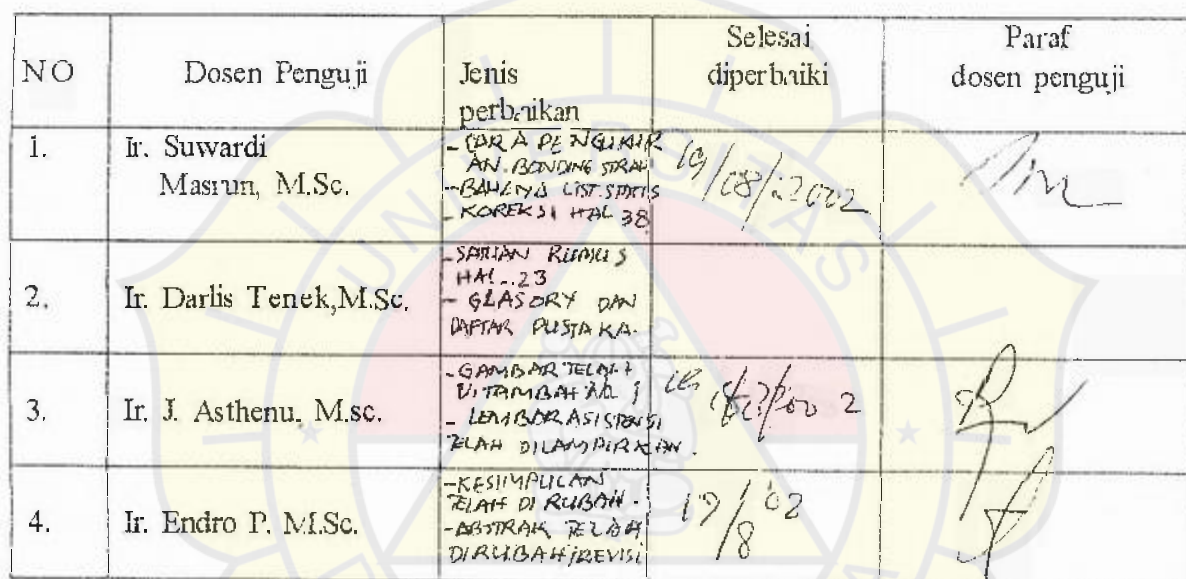 NO
Dosen Penguji
Jenis
perbaikan
Selesai
diperbaiki
Paraf
dosen penguji
1.
Ir. Suwardi
Masrun, M.Sc.
- CARA PENGUKUR
AN. BONDING STRAP
- BAHAYA LIST. STATIS
- KOREKSI HAL 38
19/08/2002
2.
Ir. Darlis Tenek,M.Sc.
- RUMUS
HAL..23
- GLASORY DAN
DAFTAR PUSTAKA.
3.
Ir. J. Asthenu. M.sc.
- GAMBAR TELAH
DITAMBAHKAN
- LEMBAR ASISTENSI
TELAH DILAMPIRKAN.
2002
4.
Ir. Endro P. M.Sc.
- KESIMPULAN
TELAH DI RUBAH.
- ABSTRAK TELAH
DIRUBAH/REVISI
19/8 '02
UNIVERSITAS